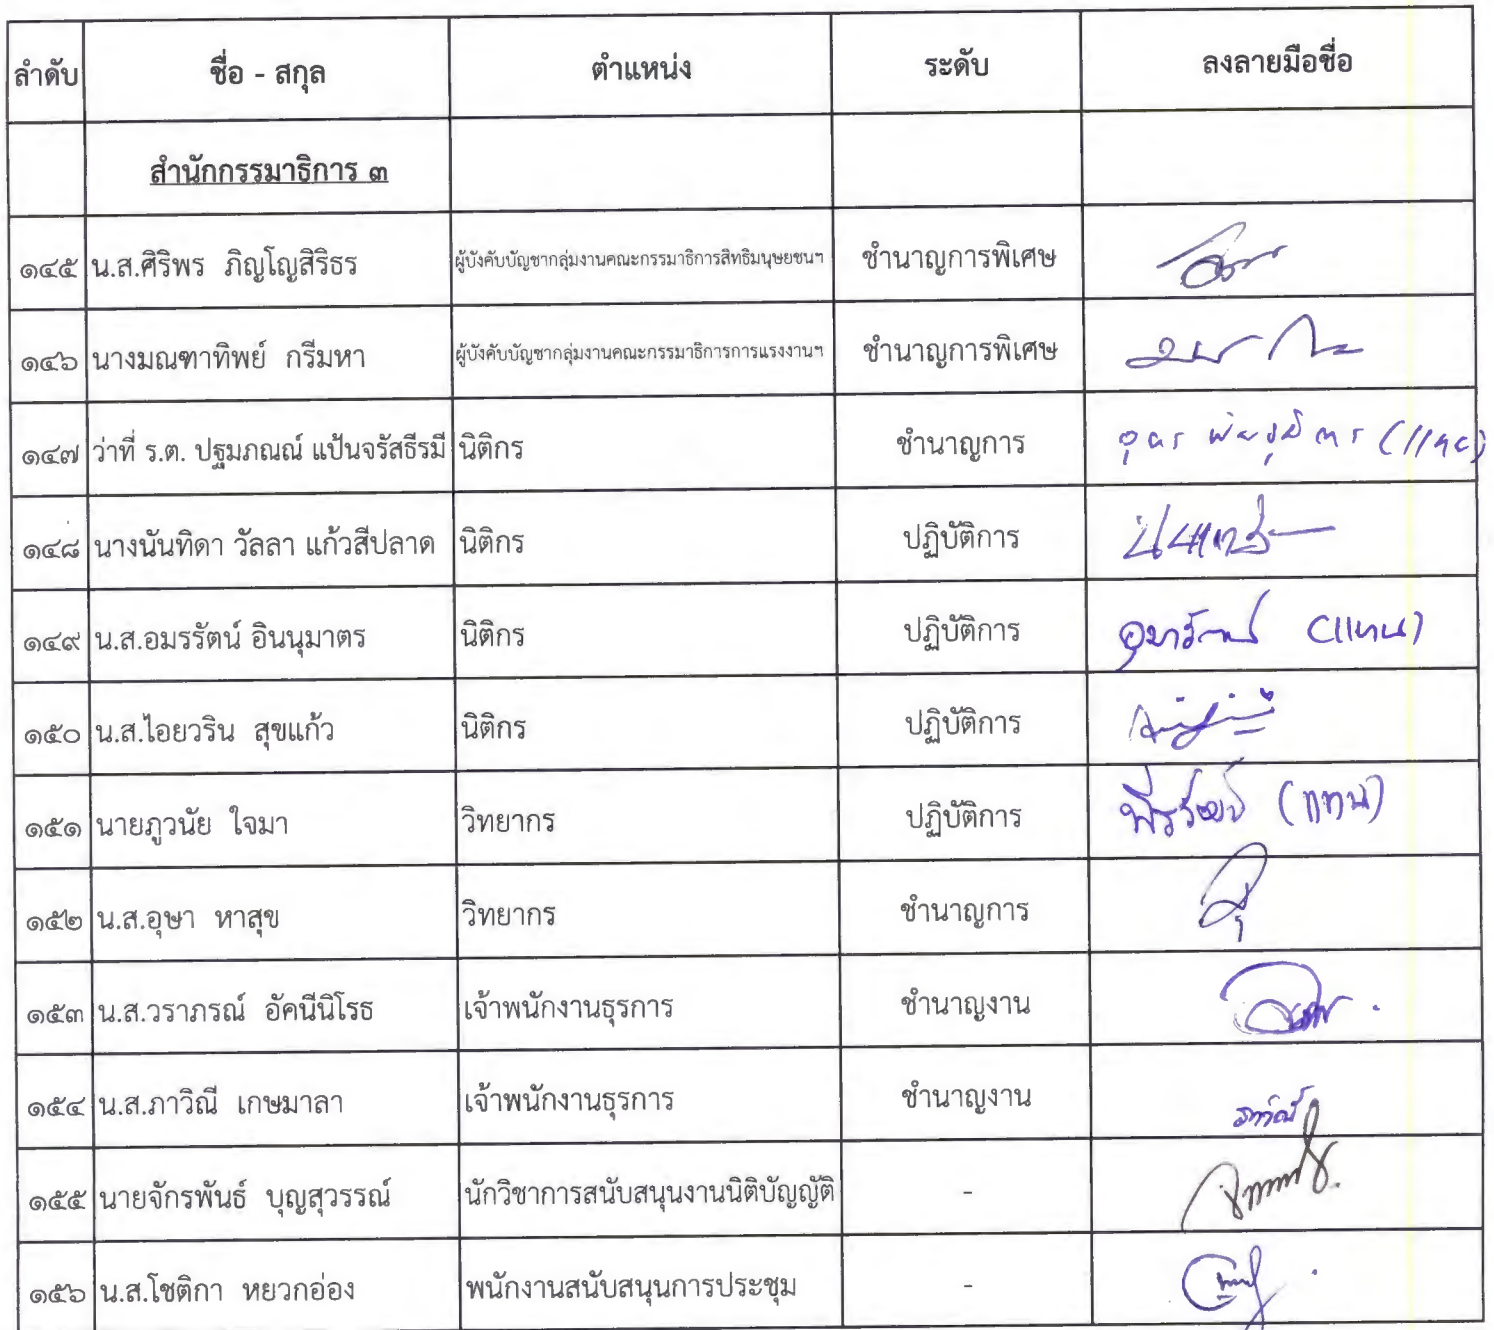 ลำดับ ชื่อ - สกุล ตำแหน่ง ระดับ ลงลายมือชื่อ
สำนักกรรมาธิการ ๓
๑๔๕ น.ส.ศิริพร ภิญโญสิริธร ผู้บังคับบัญชากลุ่มงานคณะกรรมาธิการสิทธิมนุษยชนฯ ชำนาญการพิเศษ
๑๔๖ นางมณฑาทิพย์ กรีมหา ผู้บังคับบัญชากลุ่มงานคณะกรรมาธิการการแรงงานฯ ชำนาญการพิเศษ
๑๔๗ ว่าที่ ร.ต. ปฐมภณณ์ แป้นจรัสธีรมี นิติกร ชำนาญการ (แทน)
๑๔๘ นางนันทิดา วัลลา แก้วสีปลาด นิติกร ปฏิบัติการ
๑๔๙ น.ส.อมรรัตน์ อินนุมาตร นิติกร ปฏิบัติการ (แทน)
๑๕๐ น.ส.ไอยวริน สุขแก้ว นิติกร ปฏิบัติการ
๑๕๑ นายภูวนัย ใจมา วิทยากร ปฏิบัติการ (แทน)
๑๕๒ น.ส.อุษา หาสุข วิทยากร ชำนาญการ
๑๕๓ น.ส.วราภรณ์ อัคนีนิโรธ เจ้าพนักงานธุรการ ชำนาญงาน
๑๕๔ น.ส.ภาวิณี เกษมาลา เจ้าพนักงานธุรการ ชำนาญงาน ภาวิณี
๑๕๕ นายจักรพันธ์ บุญสุวรรณ์ นักวิชาการสนับสนุนงานนิติบัญญัติ -
๑๕๖ น.ส.โชติกา หยวกอ่อง พนักงานสนับสนุนการประชุม -